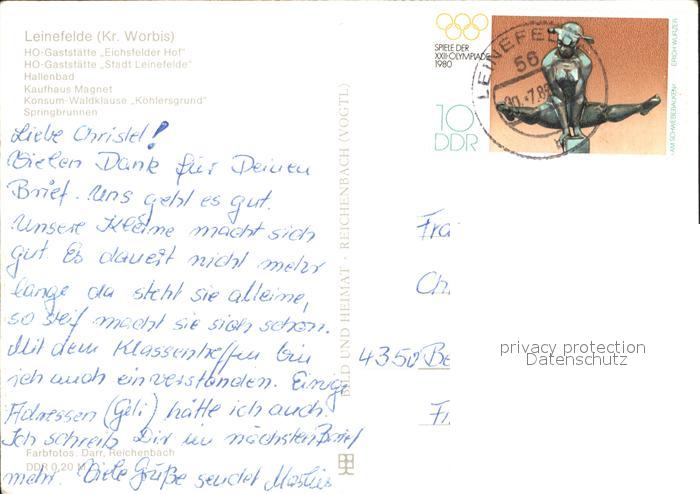 Leinefelde (Kr. Worbis)
HO-Gaststätte „Eichsfelder Hof"
HO-Gaststätte „Stadt Leinefelde"
Hallenbad
Kaufhaus Magnet
Konsum-Waldklause „Köhlersgrund"
Springbrunnen
Liebe Christel!
Vielen Dank für Deinen
Brief. Uns geht es gut.
Unsere Kleine macht sich
gut. Es dauert nicht mehr
lange da steht sie alleine,
so steif macht sie sich schon.
Mit dem Klassentreffen bin
ich auch einverstanden. Einige
Adressen (Geli) hätte ich auch.
Ich schreib Dir im nächsten Brief
mehr. Viele Grüße sendet
Farbfotos: Darr, Reichenbach
DDR 0,20 M
BILD UND HEIMAT · REICHENBACH (VOGTL)
SPIELE DER
XXII. OLYMPIADE
1980
10
DDR
AM SCHWEBEBALKEN
ERICH WURZER
LEINEFELDE
56
Fra
Ch
4350 Be
privacy protection
Datenschutz